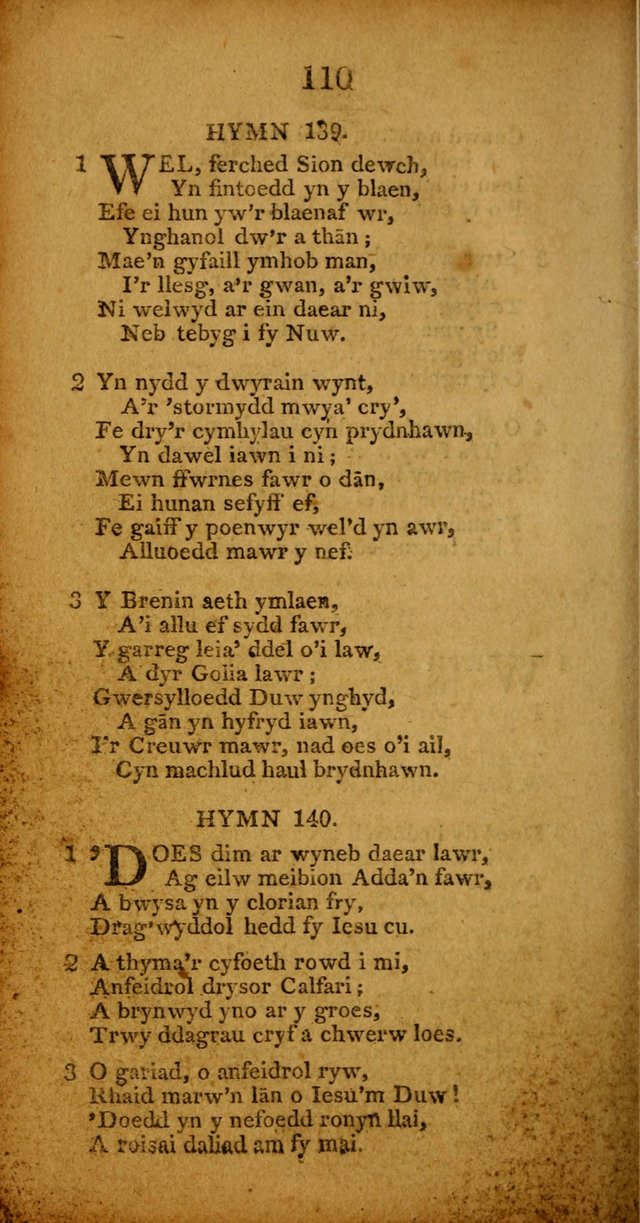 110
HYMN 139.
1 WEL, ferched Sion dewch,
Yn fintoedd yn y blaen,
Efe ei hun yw'r blaenaf wr,
Ynghanol dw'r a thān;
Mae'n gyfaill ymhob man,
I'r llesg, a'r gwan, a'r gwiw,
Ni welwyd ar ein daear ni,
Neb tebyg i fy Nuw.
2 Yn nydd y dwyrain wynt,
A'r 'stormydd mwya' cry',
Fe dry'r cymhylau cyn prydnhawn,
Yn dawel iawn i ni;
Mewn ffwrnes fawr o dān,
Ei hunan sefyff ef,
Fe gaiff y poenwyr wel'd yn awr,
Alluoedd mawr y nef.
3 Y Brenin aeth ymlaen,
A'i allu ef sydd fawr,
Y garreg leia' ddel o'i law,
A dyr Golia lawr;
Gwersylloedd Duw ynghyd,
A gān yn hyfryd iawn,
I'r Creuwr mawr, nad oes o'i ail,
Cyn machlud haul brydnhawn.
HYMN 140.
1 'DOES dim ar wyneb daear lawr,
Ag eilw meibion Adda'n fawr,
A bwysa yn y clorian fry,
Drag'wyddol hedd fy Iesu cu.
2 A thyma'r cyfoeth rowd i mi,
Anfeidrol drysor Calfari;
A brynwyd yno ar y groes,
Trwy ddagrau cryf a chwerw loes.
3 O gariad, o anfeidrol ryw,
Rhaid marw'n lān o Iesu'm Duw!
'Doedd yn y nefoedd ronyn llai,
A roisai daliad am fy mai.